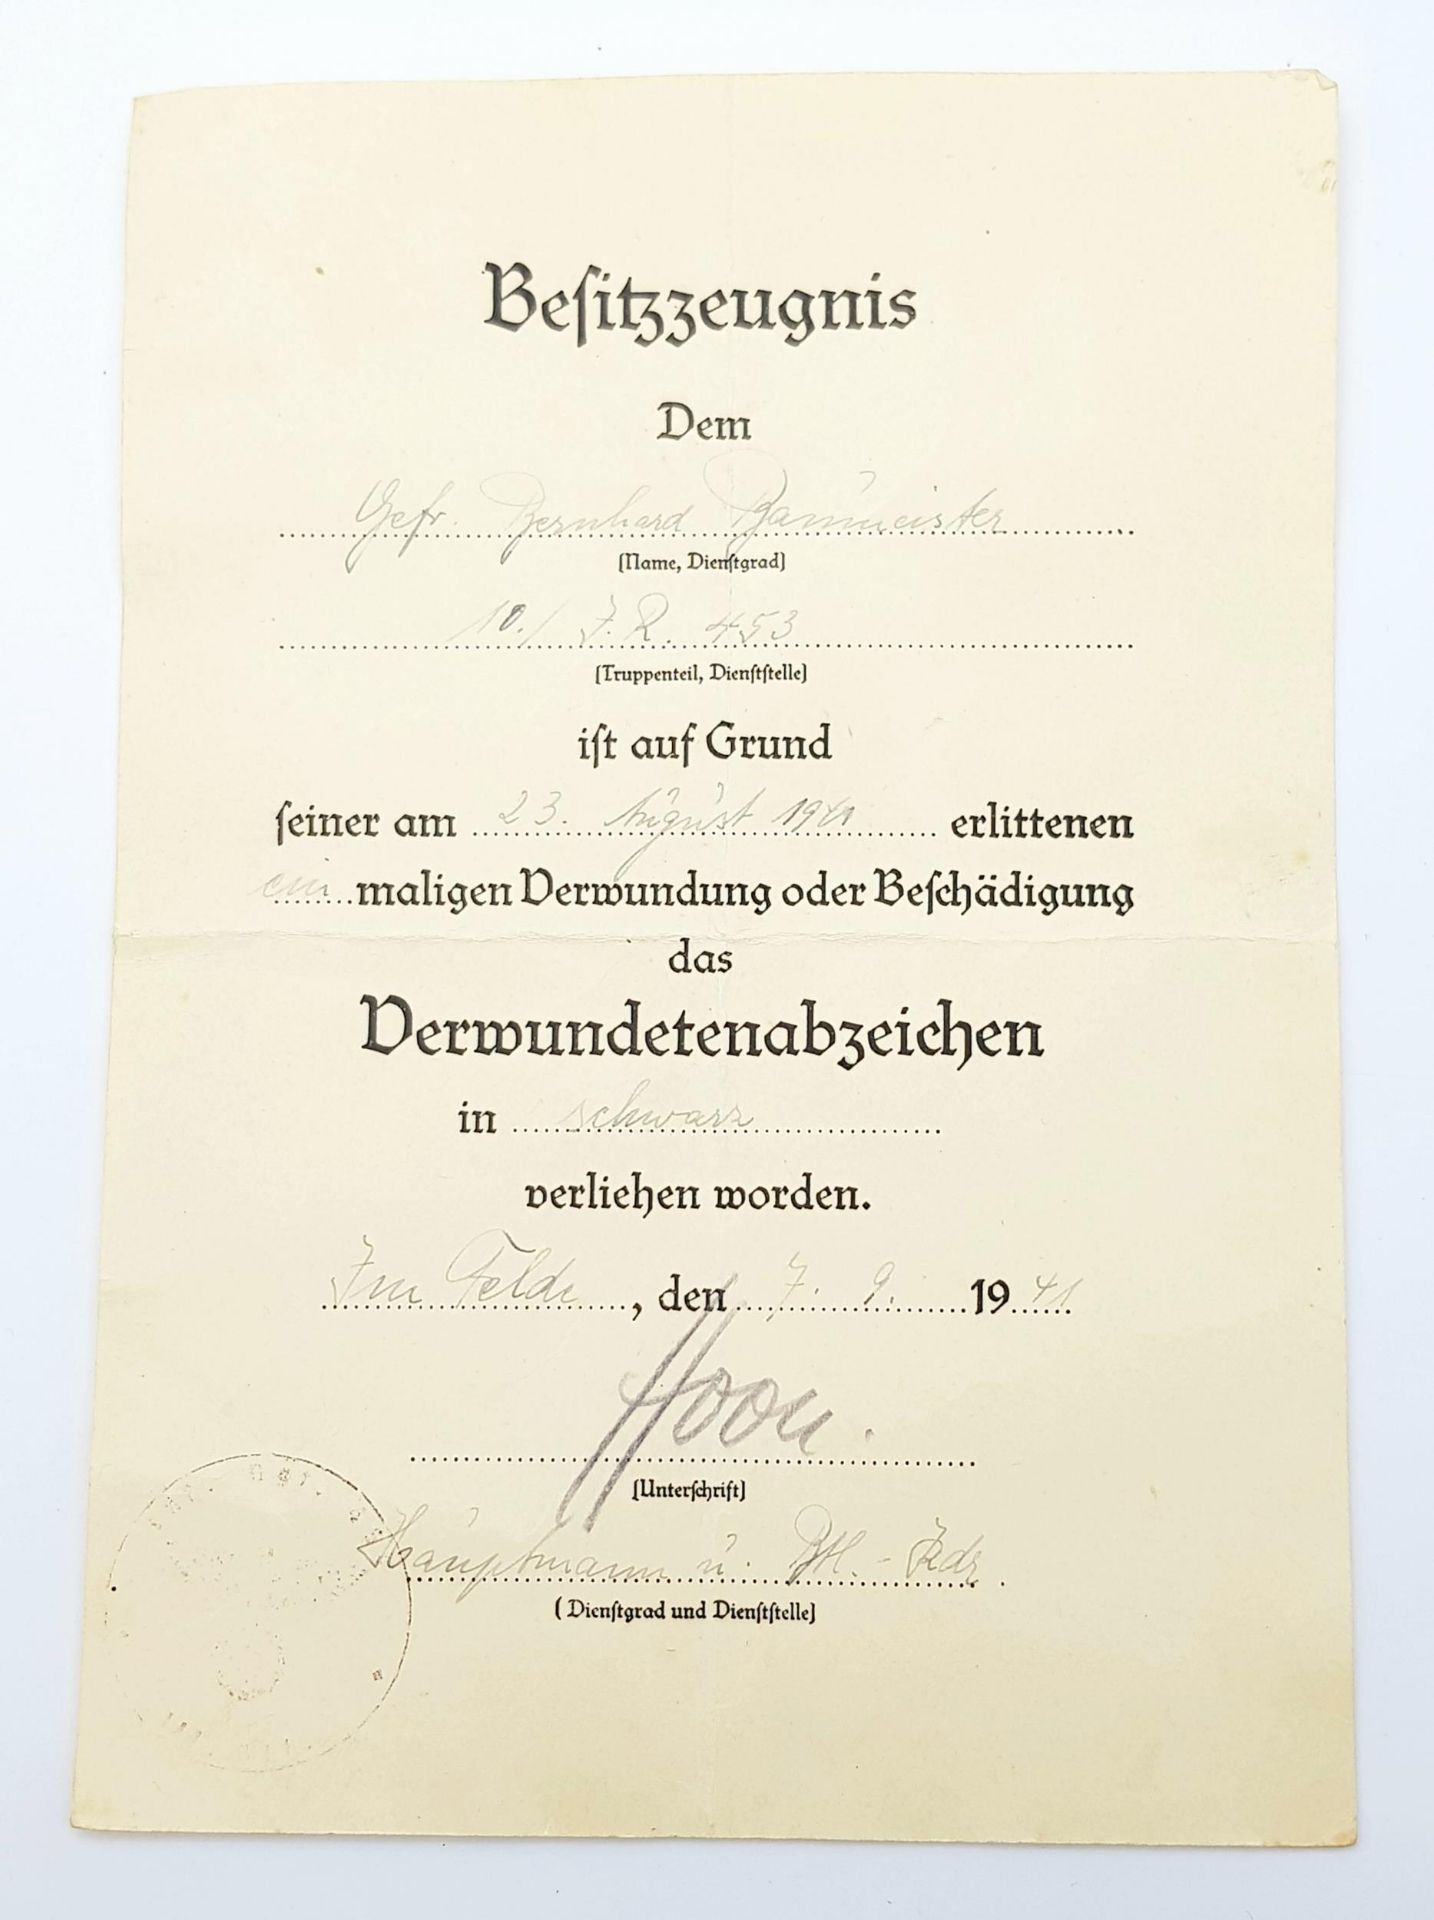 Besitzzeugnis
Dem
Gefr. Bernhard Baumeister
(Name, Dienstgrad)
10./ J.R. 453
(Truppenteil, Dienststelle)
ist auf Grund
seiner am 23. August 1941 erlittenen
ein maligen Verwundung oder Beschädigung
das
Verwundetenabzeichen
in schwarz
verliehen worden.
Im Felde, den 7. 9. 1941
(Unterschrift)
Hauptmann u. Btl.-Kdr.
(Dienstgrad und Dienststelle)